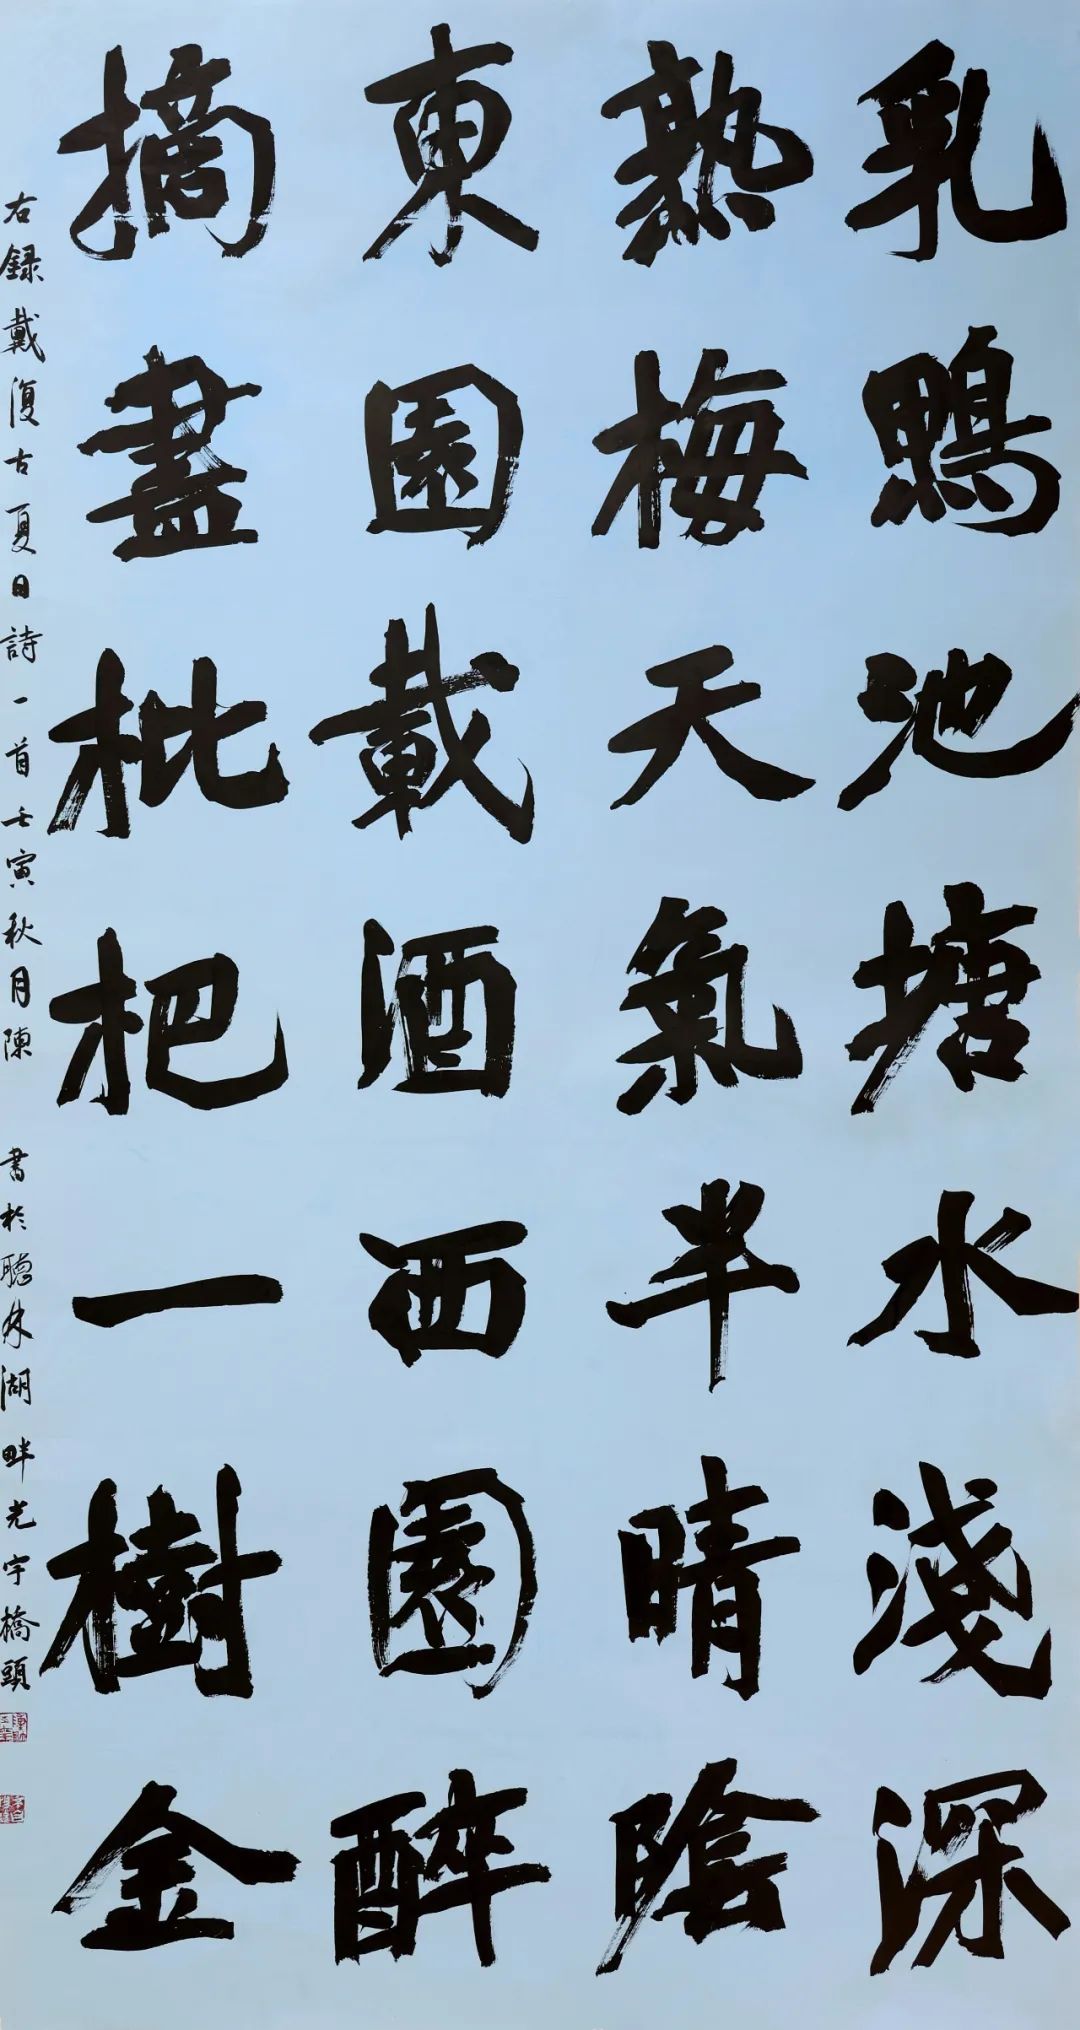 乳鴨池塘水淺深
熟梅天氣半晴陰
東園載酒西園醉
摘盡枇杷一樹金
右録戴復古夏日詩一首壬寅秋月陳 書於聽林湖畔光宇橋頭